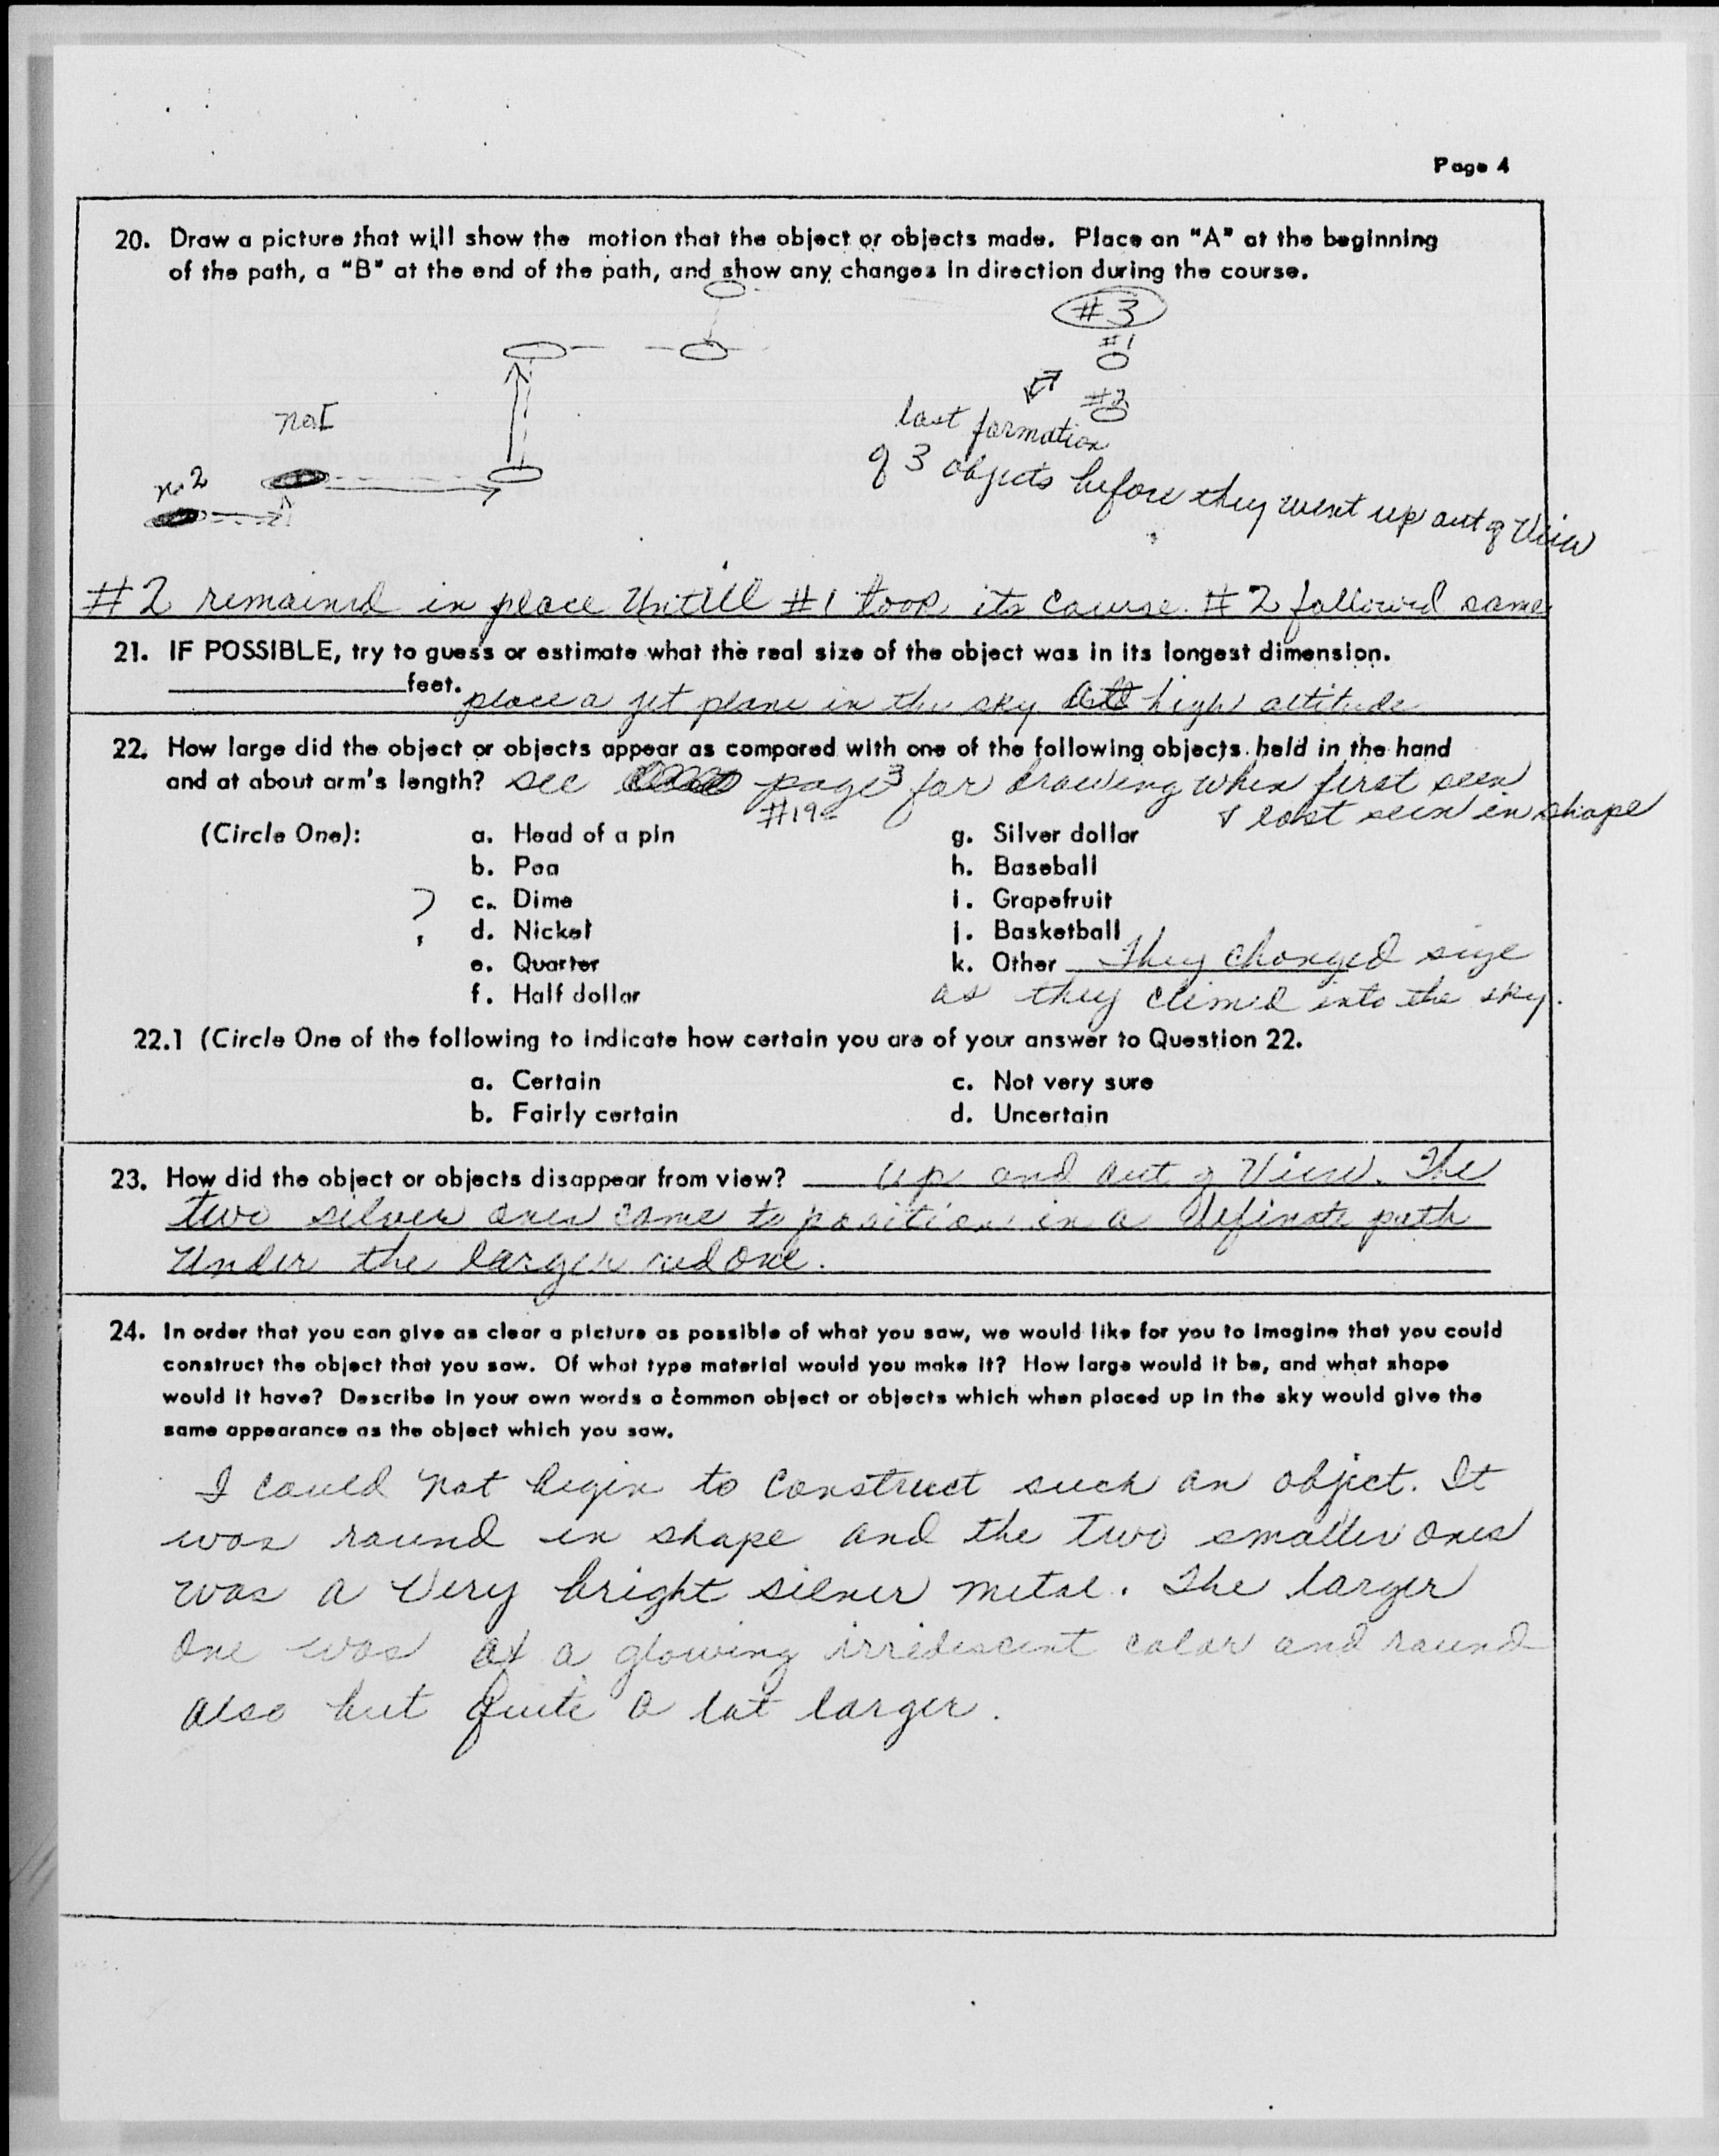 Page 4
20. Draw a picture that will show the motion that the object or objects made. Place an "A" at the beginning
of the path, a "B" at the end of the path, and show any changes in direction during the course.
#3
#1
#2
no I
no 2
last formation
of 3 objects before they went up out of View
#2 remained in place Untill #1 took its course. #2 followed same
21. IF POSSIBLE, try to guess or estimate what the real size of the object was in its longest dimension.
feet. place a jet plane in the sky at high altitude
22. How large did the object or objects appear as compared with one of the following objects held in the hand
and at about arm's length? see page 3 for drawing when first seen
#19 & last seen in shape
(Circle One): a. Head of a pin g. Silver dollar
b. Pea h. Baseball
? c. Dime i. Grapefruit
d. Nickel j. Basketball
e. Quarter k. Other They changed size
f. Half dollar as they climed into the sky.
22.1 (Circle One of the following to indicate how certain you are of your answer to Question 22.
a. Certain c. Not very sure
b. Fairly certain d. Uncertain
23. How did the object or objects disappear from view? up and out of View. The
two silver ones came to position in a definate path
Under the larger red one.
24. In order that you can give as clear a picture as possible of what you saw, we would like for you to imagine that you could
construct the object that you saw. Of what type material would you make it? How large would it be, and what shape
would it have? Describe in your own words a common object or objects which when placed up in the sky would give the
same appearance as the object which you saw.
I could not begin to construct such an object. It
was round in shape and the two smaller ones
was a Very bright silver metal. The larger
one was of a glowing irridescent color and round
also but quite a lot larger.